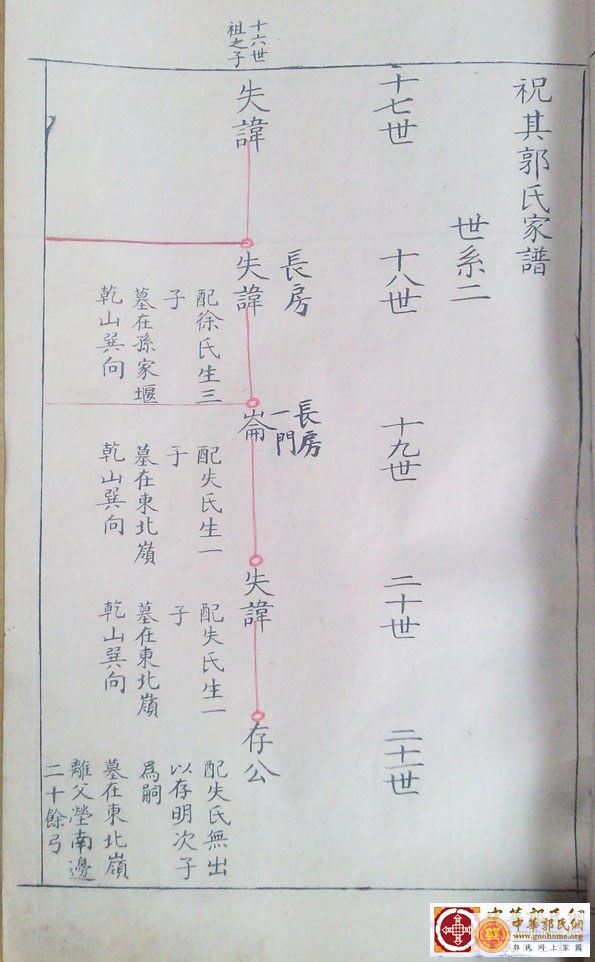 祝其郭氏家譜
世系二
十七世
十八世
十九世
二十世
二十一世
十六世
祖之子
失諱
長房
失諱
配徐氏生三
子
墓在孫家堰
乾山巽向
長房
一門
崙
配失氏生一
子
墓在東北嶺
乾山巽向
失諱
配失氏生一
子
墓在東北嶺
乾山巽向
存公
配失氏無出
以存明次子
為嗣
墓在東北嶺
離父塋南邊
二十餘弓
中華郭氏網
www.guohome.org
郭氏网上家園